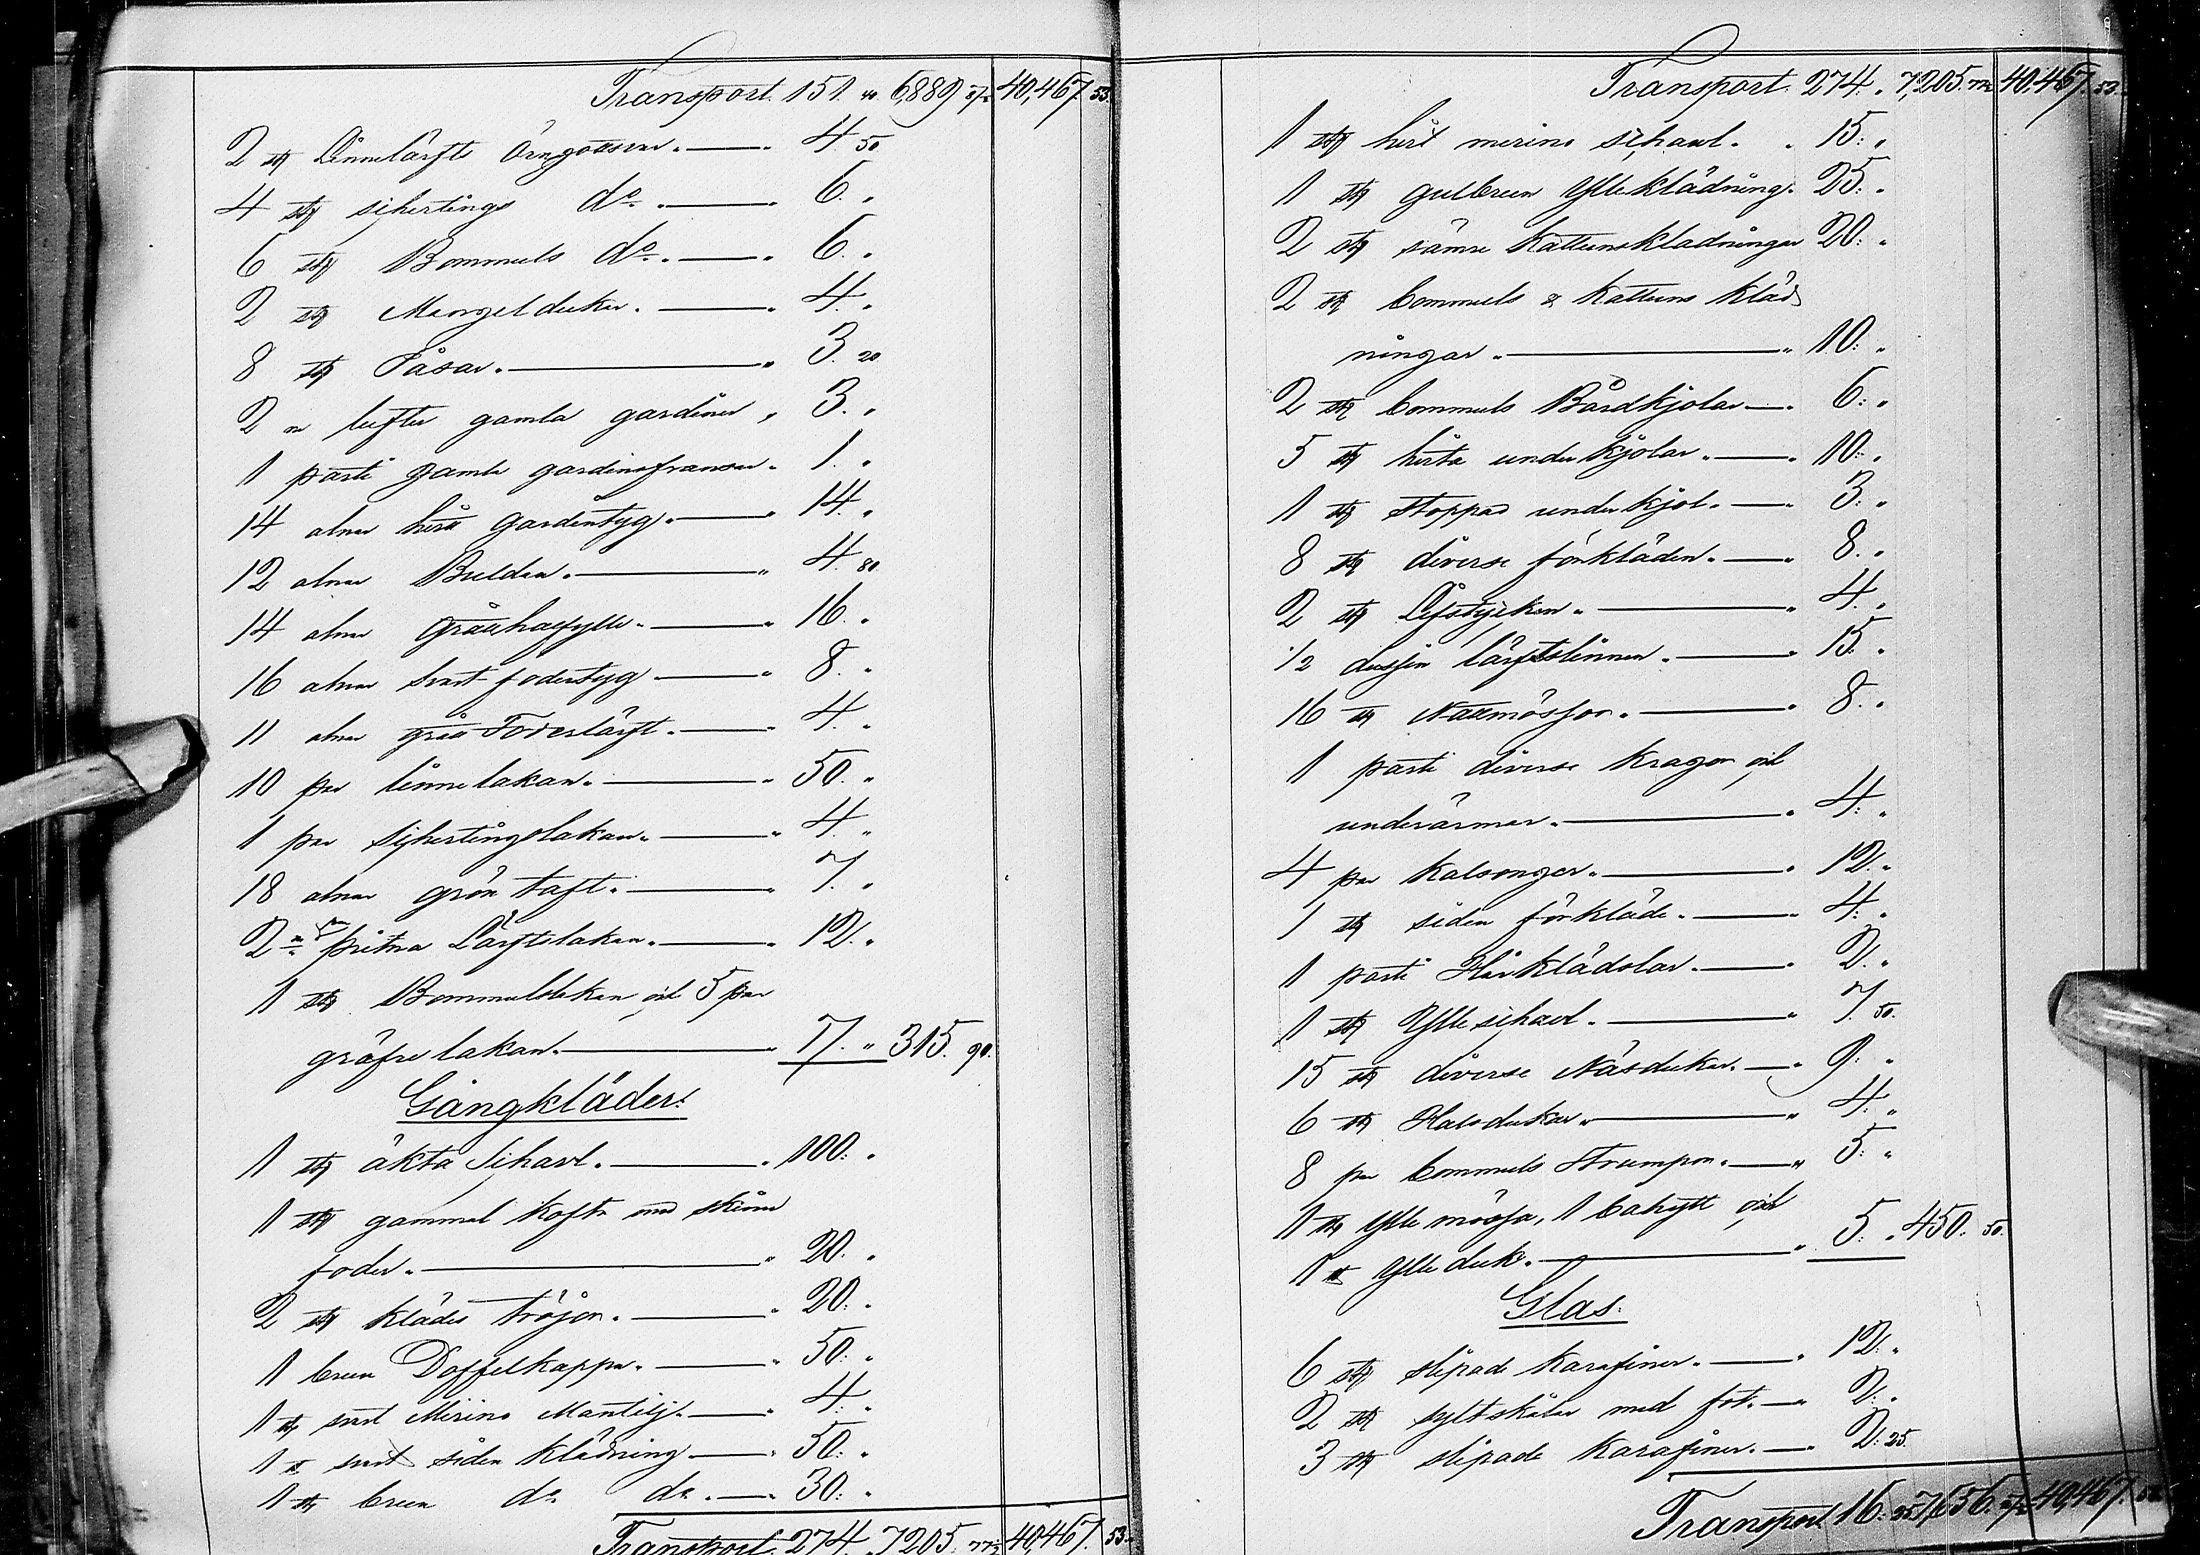 Transport. 151. " 6,889 87½ 40,467. 53.
2 st Linnelärfts Örngottsvar. — 4 50
4 st schertings do. — 6. "
6 st Bommuls do. — 6. "
2 st Mangeldukar. — 4. "
8 st Påsar. — 3. 20
2 n lufter gamla gardiner " 3. "
1 parti gamla gardinsfransar. 1. "
14 alnar hvitt Gardintyg. — 14. "
12 alnar Buldan. — 4. 80
14 alnar grått halfylle. — 16. "
16 alnar svart fodertyg — 8. "
11 alnar grått Foderlärft. — 4. "
10 par linnelakan. — 50. "
1 par schertingslakan. — 4. "
18 alnar grön taft. — 7. "
2 " par slitna Lärftslakan. — 12. "
1 st Bommulslakan och 5 par
gröfre lakan. — 17. " 315. 90.
Gångkläder:
1 st äkta Schavl. — 100: "
1 st gammal Kofta med skinn
foder. — 20. "
2 st klädes tröjor. — 20: "
1 brun Doffelkappa. — 50: "
1 st svart Merino Mantilj. — 4: "
1 st svart siden klädning — 50: "
1 st brun do. do. — 30: "
Transport. 274. " 7205. 77½ 40,467. 53.
Transport. 274. " 7,205. 77½ 40,467. 53.
1 st hvit merino schavl. " 15: "
1 st gulbrun Ylleklädning. 25: "
2 st sämre Kattunsklädningar 20: "
2 st bommuls & Kattuns kläd
ningar. — 10: "
2 st bommuls Bårdkjolar — 6: "
5 st hvita underkjolar. — 10: "
1 st stoppad underkjol. — 3: "
8 st diverse förkläden. — 8. "
2 st Lifstycken. — 4. "
½ dussin lärftslinnen. — 15. "
16 st Nattmössor. — 8. "
1 parti diverse Kragar och
underärmar. — 4: "
4 par Kalsonger. — 12. "
1 st siden förkläde. — 4: "
1 parti Hårklädslar. — 2. "
1 st Ylle schavl. — 7. 50.
15 st diverse Näsdukar. — 9: "
6 st Halsdukar. — 4: "
8 par bommuls Strumpor. — 5: "
1 st Ylle mössa, 1 bahytt och
1 st Ylleduk. — 5: " 450: 50.
Glas.
6 st slipade Karafiner. — 12: "
2 st syltskålar med fot. — 2: "
3 st slipade Karafiner. — 2: 25.
Transport 16: 25 7,656. 27½ 40,467. 53.